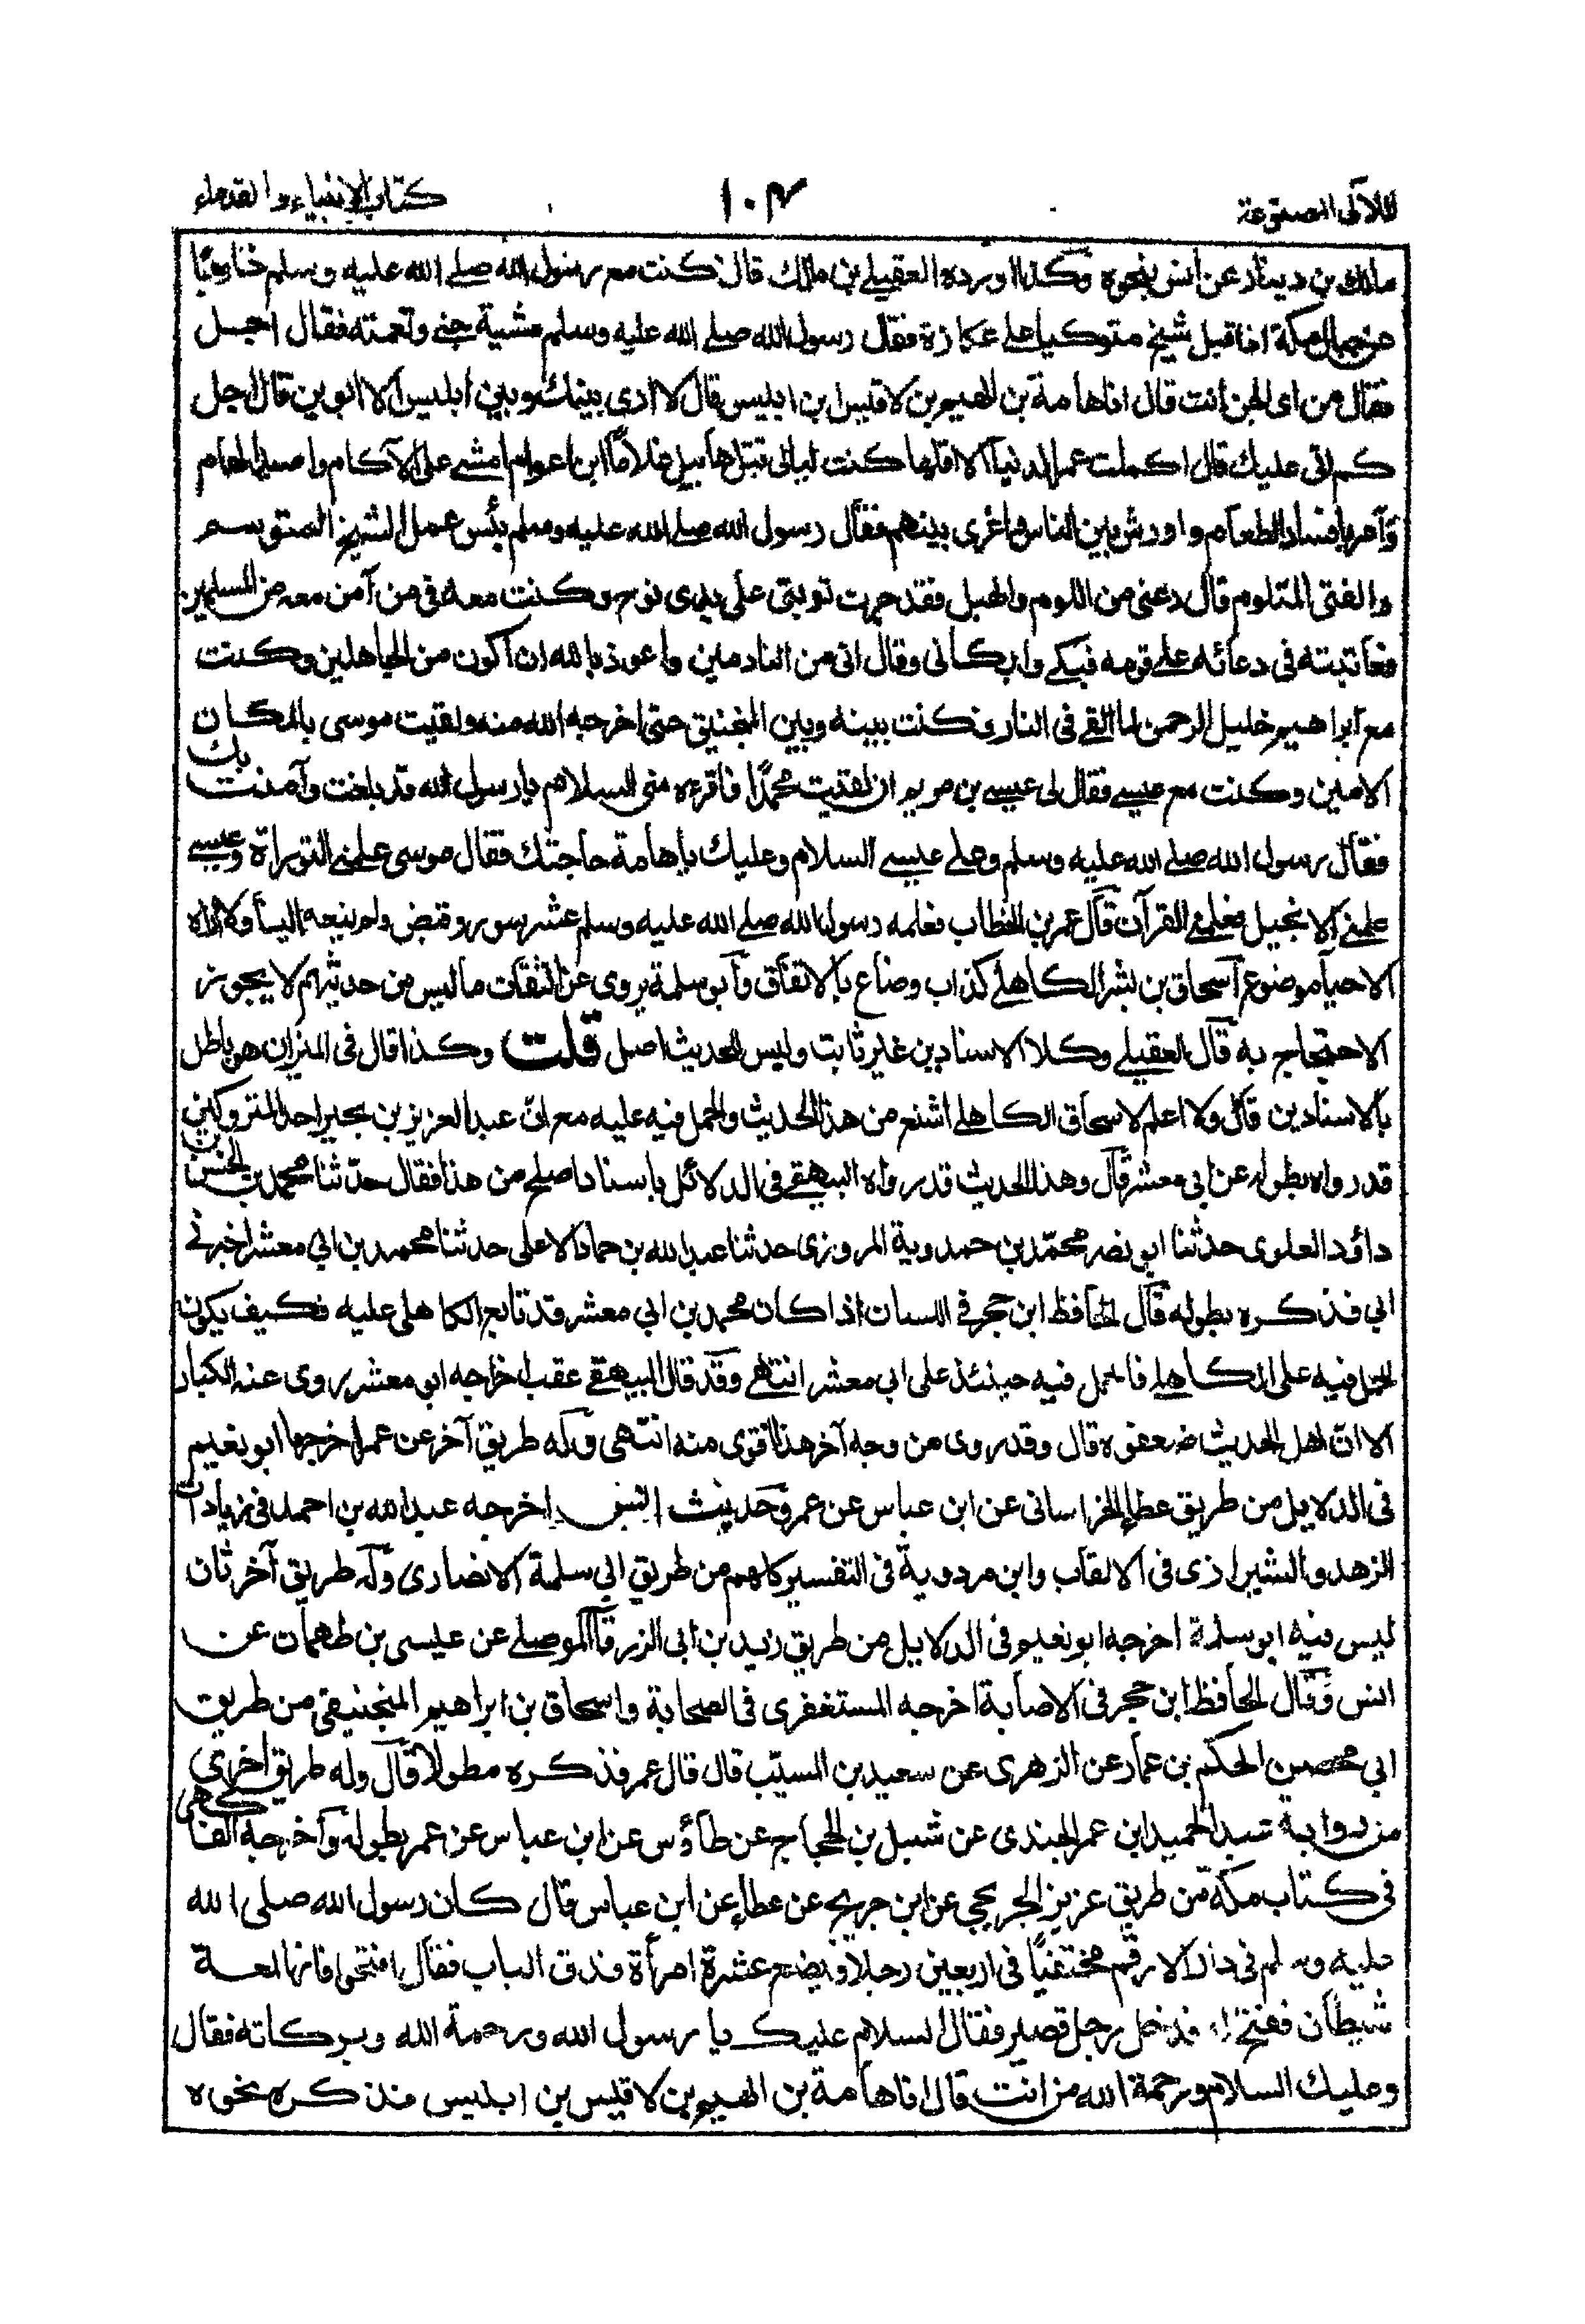 اللآلى المصنوعة ١٠٣ كتاب الانبياء والقدماء
مالك بن دينار عن انس بنحوه وكذا اورده العقيلى بن مالك قال كنت مع رسول الله صلى الله عليه وسلم خارجًا
من جبال مكة اذ اقبل شيخ متوكيا على عكازة فقال رسول الله صلى الله عليه وسلم مشية جنى ونغمته فقال اجل
فقال من اى الجن انت قال انا هامة بن الهيم بن لاقيس ابن ابليس قال لا ارى بينك وبين ابليس الا ابوين قال اجل
كم اتى عليك قال اكملت عمر الدنيا الا اقلها كنت ليالى قتل هابيل غلامًا ابن اعوام امشى على الآكام واصيد الهام
وآمر بافساد الطعام واورش بين الناس واغرى بينهم فقال رسول الله صلى الله عليه وسلم بئس عمل الشيخ المتوسم
والفتى المتلوم قال دعنى من اللوم والهبل فقد جرت توبتى على يدى نوح وكنت معه فى من آمن معه من المسلمين
فعاتبته فى دعائه على قومه فبكى وابكانى وقال انى من النادمين واعوذ بالله ان اكون من الجاهلين وكنت
مع ابراهيم خليل الرحمن لما القى فى النار فكنت بينه وبين المنجنيق حتى اخرجه الله منه ولقيت موسى بالمكان
الامين وكنت مع عيسى فقال لى عيسى بن مريم ان لقيت محمدًا فاقرءه منى السلام يا رسول الله قد بلغت وآمنت بك
فقال رسول الله صلى الله عليه وسلم وعلى عيسى السلام وعليك يا هامة حاجتك فقال موسى علمنى التوراة وعيسى
علمنى الانجيل فعلمنى القرآن قال عمر بن الخطاب فعلمه رسول الله صلى الله عليه وسلم عشر سور وقبض ولم ينعه الينا ولا اراه
الا حيا موضوع اسحاق بن بشر الكاهلى كذاب وضاع بالاتفاق وابو سلمة يروى عن الثقات ما ليس من حديثهم لا يجوز
الاحتجاج به قال العقيلى وكلا الاسنادين غير ثابت وليس للحديث اصل قلت وكذا قال فى الميزان هو باطل
بالاسنادين قال ولا اعلم لاسحاق الكاهلى اشنع من هذا الحديث والحمل فيه عليه مع ان عبد العزيز بن بحير احد المتروكين
قد رواه بطوله عن ابي معشر قال وهذا الحديث قد رواه البيهقى فى الدلائل باسناد اصلح من هذا فقال حدثنا محمد بن الحسن بن
داؤد العلوى حدثنا ابو نصر محمد بن حمدوية المروزى حدثنا عبد الله بن حماد الاعلى حدثنا محمد بن ابي معشر اخبرنى
ابي فذكره بطوله قال الحافظ ابن حجر فى اللسان اذا كان محمد بن ابي معشر قد تابع الكاهلى عليه فكيف يكون
الحمل فيه على الكاهلى فالحمل فيه حينئذ على ابي معشر انتهى وقد قال البيهقى عقب اخراجه ابو معشر روى عنه الكبار
الا ان اهل الحديث ضعفوه قال وقد روى من وجه آخر هذا اقوى منه انتهى وله طريق آخر عن عمر اخرجها ابو نعيم
فى الدلايل من طريق عطا الخراسانى عن ابن عباس عن عمر وحديث انس اخرجه عبد الله بن احمد فى زيادات
الزهد والشيرازى فى الالقاب وابن مردوية فى التفسير كلهم من طريق ابي سلمة الانصارى وله طريق آخر ثان
ليس فيه ابو سلمة اخرجه ابو نعيم فى الدلايل من طريق زيد بن ابى الزرقا الموصلى عن عيسى بن طهمان عن
انس وقال الحافظ ابن حجر فى الاصابة اخرجه المستغفرى فى الصحابة واسحاق بن ابراهيم المنجنيقى من طريق
ابي محصن الحكم بن عمار عن الزهرى عن سعيد بن المسيب قال قال عمر فذكره مطولا قال وله طريق اخرى
من رواية عبد الحميد ابن عمر الجندى عن شبل بن الحجاج عن طاؤس عن ابن عباس عن عمر بطوله واخرجه الفاكهى
فى كتاب مكة من طريق عزيز الجريجى عن ابن جريج عن عطا عن ابن عباس قال كان رسول الله صلى الله
عليه وسلم فى دار الارقم مختفيًا فى اربعين رجلا وبضع عشرة امرأة فدق الباب فقال افتحوا فانها لمعة
شيطان ففتح له فدخل رجل قصير فقال السلام عليك يا رسول الله ورحمة الله وبركاته فقال
وعليك السلام ورحمة الله من انت قال انا هامة بن الهيم بن لاقيس بن ابليس فذكره نحوه